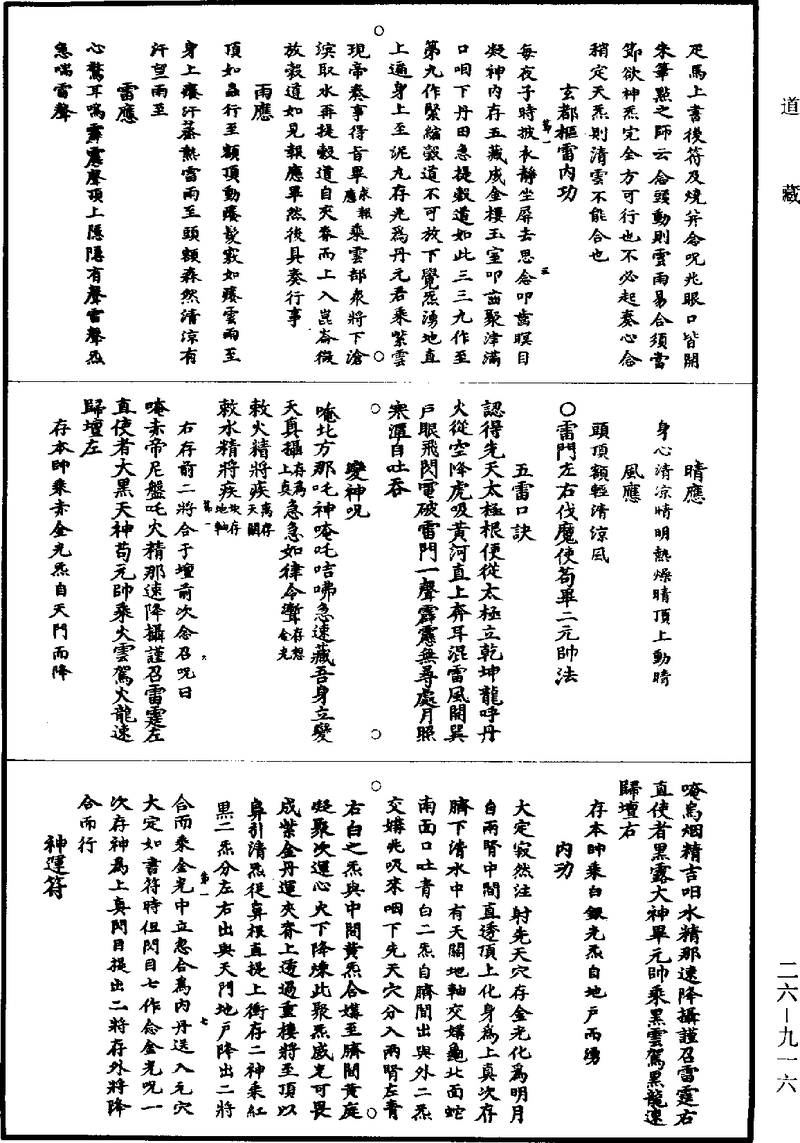 道藏
疋馬上書後符及燒并念呪兆眼口皆開
朱筆點之師云念頭動則雲雨易合須當
節欲神炁完全方可行也不必起奏心念
稍定天炁則清雲不能合也
玄都樞雷內功
每夜子時披衣靜坐屏去思念叩齒瞑目
凝神內存五藏成金樓玉室叩齒聚津滿
口咽下丹田急提穀道如此三三九作至
第九作緊縮穀道不可放下覺炁湧地直
上遍身上至泥丸存兆爲丹元君乘紫雲
現帝奏事得旨畢求報應乘雲部衆將下滄
溟取水再提穀道自夾脊而上入崑崙微
放穀道如見報應畢然後具奏行事
雨應
頂如蟲行至額頂動癢髮竅如癢雲雨至
身上癢汗蒸熱當雨至頭額森然清涼有
汗望雨至
雷應
心驚耳鳴霹靂聲頂上隱隱有聲雷聲炁
急喘雷聲
晴應
身心清凉晴明熱燥晴頂上動晴
風應
頭頂額輕清涼風
○雷門左右伐魔使苟畢二元帥法
五雷口訣
認得先天太極根便從太極立乾坤龍呼丹
火從空降虎吸黃河直上奔耳混雷風開巽
戶眼飛閃電破雷門一聲霹靂無尋處月照
寒潭自吐吞
變神呪
唵北方那吒神唵吒咭咈急速藏吾身立變
天真攝存爲上真急急如律令漸存想金光
敕火精將疾离存天關
敕水精將疾坎存地軸
右存前二將合于壇前次念召呪曰
唵赤帝尼盤吒火精那速降攝謹召雷霆左
直使者大黑天神苟元帥乘火雲駕火龍速
歸壇左
存本帥乘赤金光炁自天門而降
唵烏烟精吉呾水精那速降攝謹召雷霆右
直使者黑露大神畢元帥乘黑雲駕黑龍速
歸壇右
存本帥乘白銀光炁自地戶而湧
內功
大定寂然注射先天穴存金光化爲明月
自兩腎中間直透頂上化身爲上真次存
臍下清水中有天關地軸交媾龜北面蛇
南面口吐青白二炁自臍間出與外二炁
交媾兆吸來咽下先天穴分入兩腎左青
右白之炁與中間黃炁合媾至臍間黃庭
凝聚次運心火下降煉此聚炁威光可畏
成紫金丹運夾脊上透過重樓將至頂以
鼻引清炁從鼻根直提上衝存二神乘紅
黑二炁分左右出與天門地戶降出二將
合而乘金光中立忽合爲內丹送入元穴
大定如書符時但閉目七作念金光呪一
次存神爲上真閉目提出二將存外將降
合而行
神運符
二六－九一六